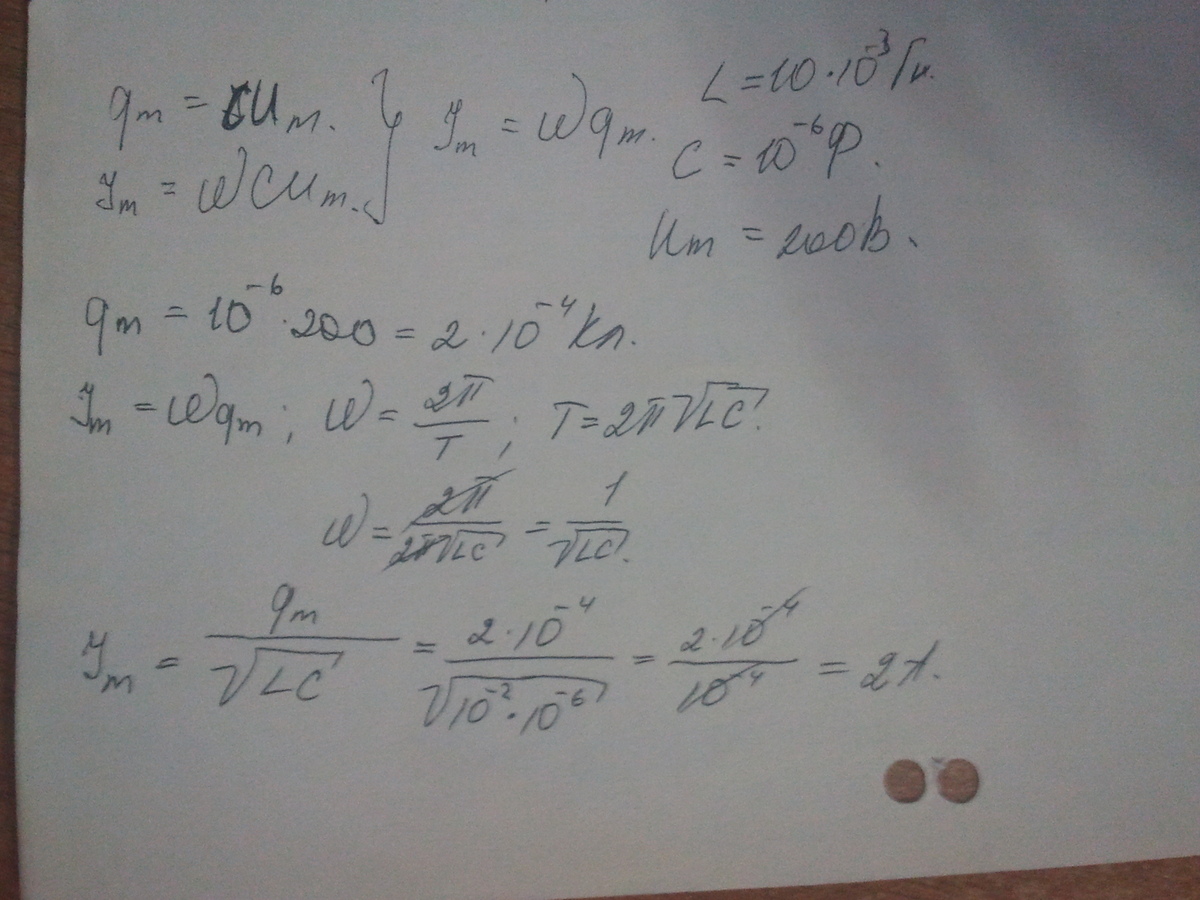 qm = CUm. } Jm = ωqm.
L = 10·10⁻³ Гн.
Jm = ωCUm.
C = 10⁻⁶ Ф.
Um = 200 В.
qm = 10⁻⁶·200 = 2·10⁻⁴ Кл.
Jm = ωqm; ω = 2π/T; T = 2π√LC.
ω = 2π/2π√LC = 1/√LC.
Jm = qm/√LC = 2·10⁻⁴/√10⁻²·10⁻⁶ = 2·10⁻⁴/10⁻⁴ = 2А.